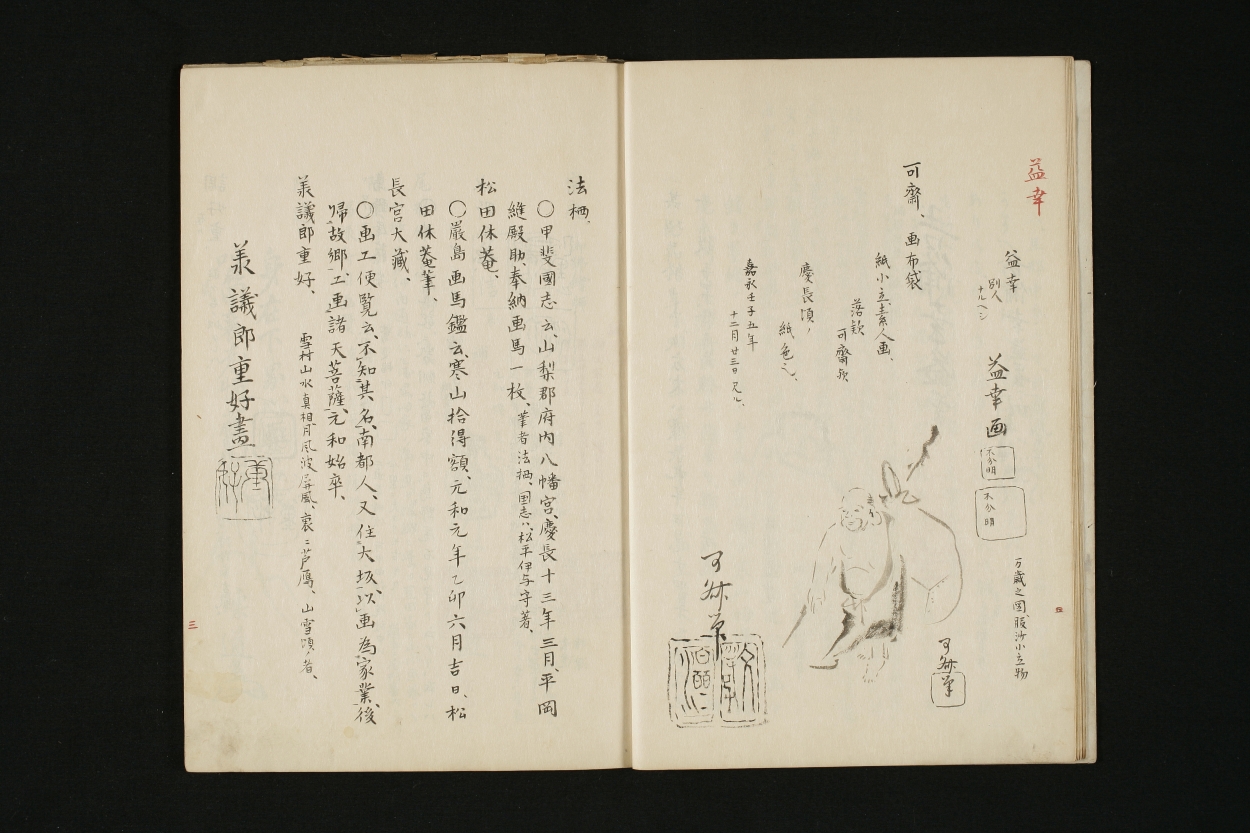 益幸
益幸
別人
ナルヘシ
益幸画
不分明
不分明
万歳之図
可齋、画布袋
紙小立、素人画、
落款
可齋
慶長頃ノ
紙色也、
嘉永壬子五年
十二月廿三日見ル、
可
筆
可
筆
四
法栖、
〇甲斐國志云、山梨郡府内八幡宮、慶長十三年三月、平岡
縫殿助、奉納画馬一枚、筆者法栖、国志ハ、松平伊与守著、
松田休菴、
〇嚴島画馬鑑云、寒山拾得額、元和元年乙卯六月吉日、松
田休菴筆、
長宮大蔵、
〇画工便覧云、不知其名、南都人、又住大坂、以画為家業、後
帰故郷、工画諸天菩薩、元和始卒、
義議郎重好、
雪村山水真相月風波屏風、裏ニ芦鴈、山雪頃ノ者、
義議郎重好畫
重好
三